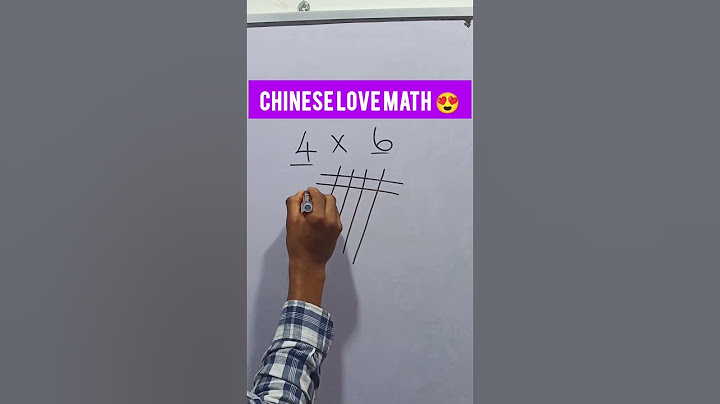 CHINESE LOVE MATH 😍
4 x 6